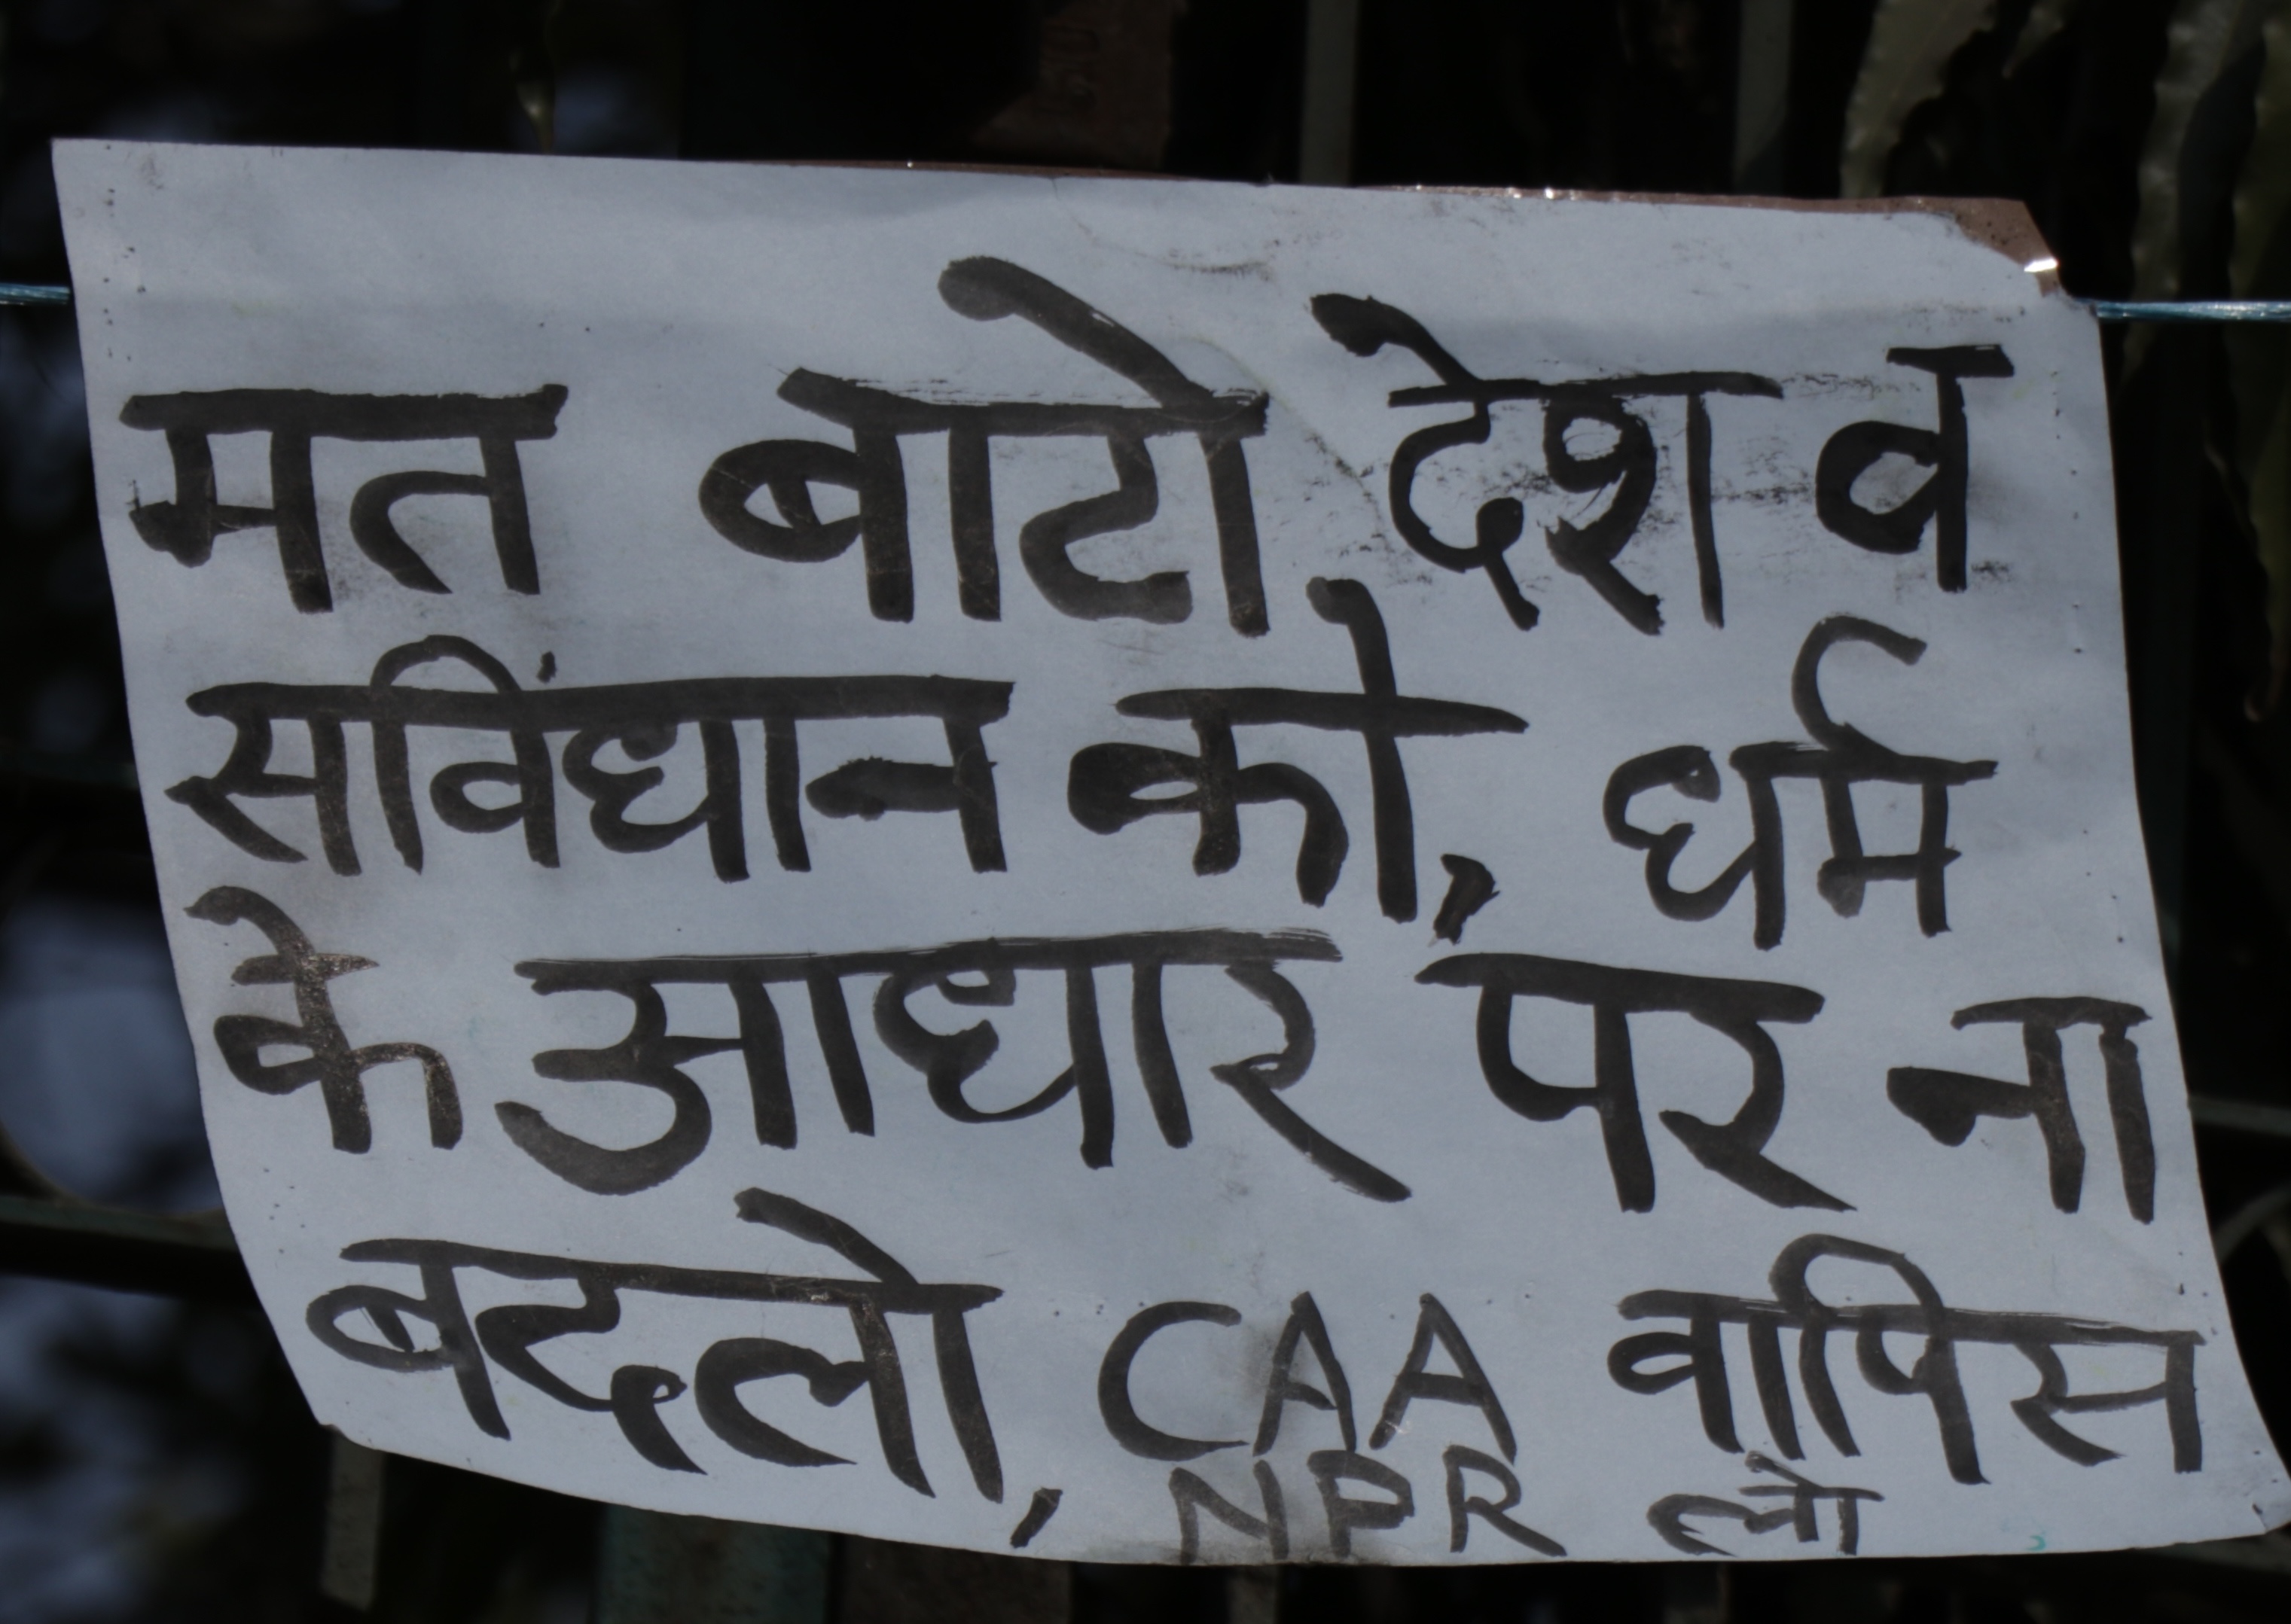 मत बाटो देश व
सविंधान को, धर्म
के आधार पर ना
बदलो, CAA वापिस
NPR लो